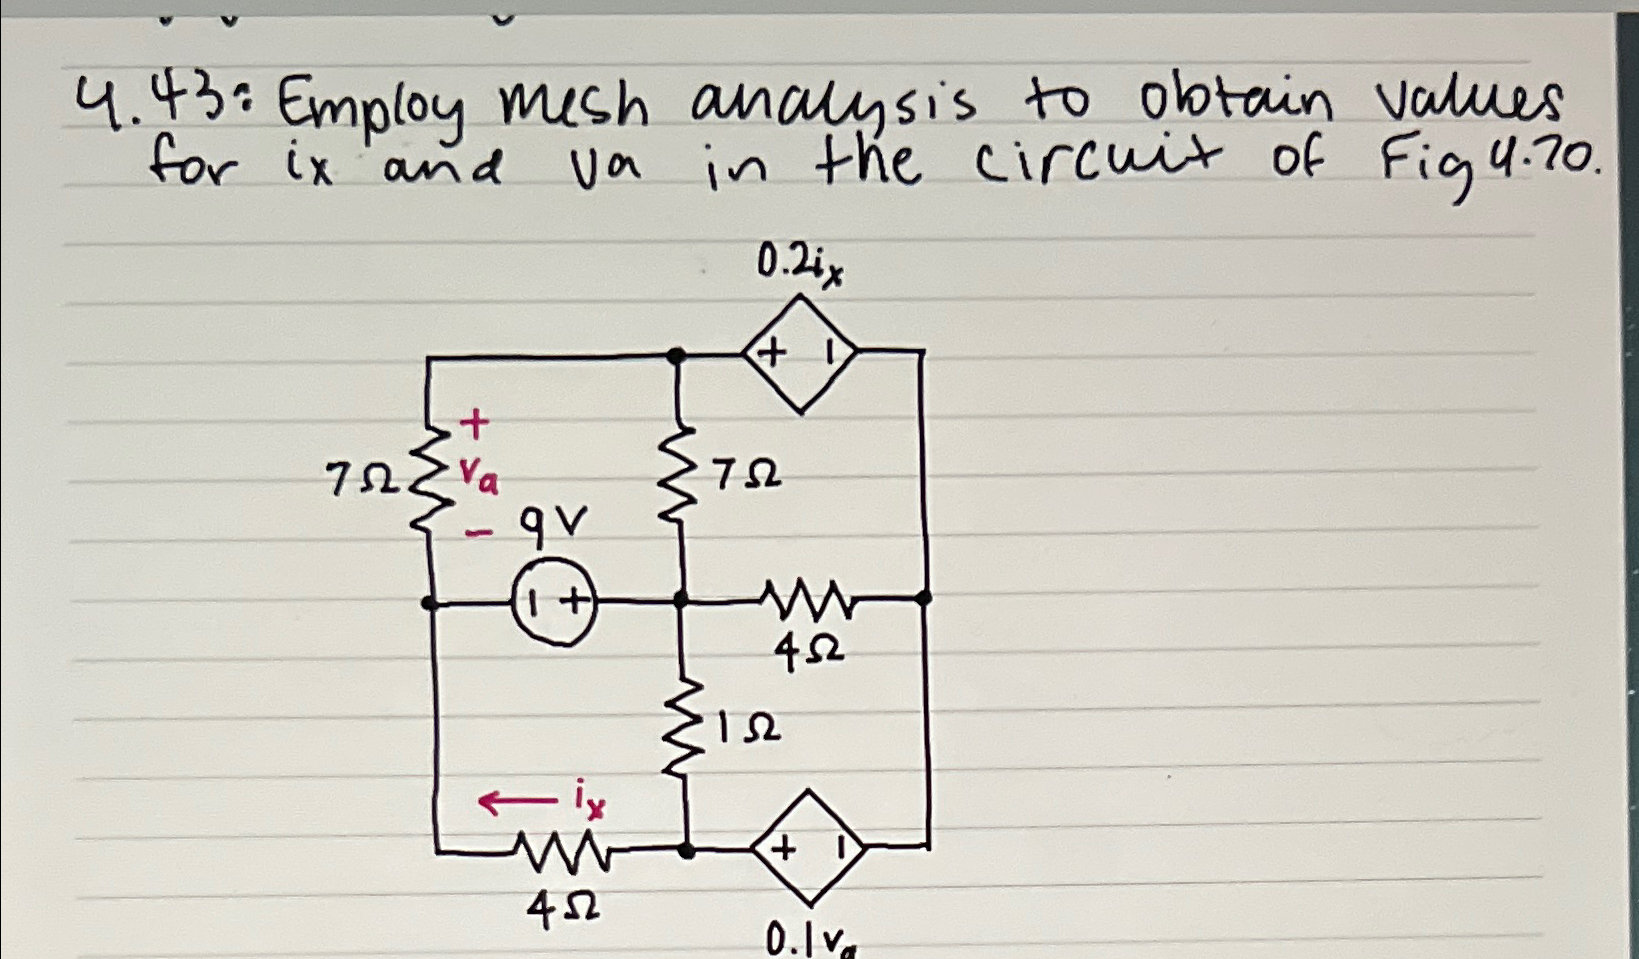 4.43: Employ mesh analysis to obtain values
for ix and va in the circuit of Fig 4.70.
0.2ix
+ -
+
7Ω va 7Ω
- 9V
- +
4Ω
1Ω
← ix
+ -
4Ω
0.1va